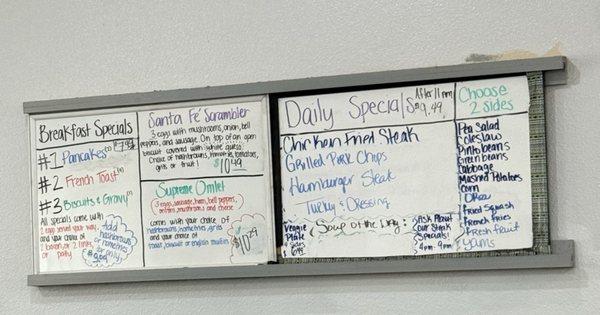 Breakfast Specials
$7.99
#1 Pancakes
#2 French Toast
#3 Biscuits & Gravy
All specials come with
2 eggs served your way,
and your choice of
2 bacon, or 2 links,
or patty
add
hashbrowns
or homefries
only
Santa Fe' Scrambler
3 eggs with mushrooms, onion, bell
peppers, and sausage. On top of an open
biscuit covered with white queso.
Choice of hashbrowns, homefries, tomatoes,
grits or fruit!
$10.49
Supreme Omlet
3 eggs, sausage, ham, bell peppers,
onions, mushrooms and cheese
comes with your choice of
hashbrowns, homefries, grits
and your choice of
toast, biscuit or english muffin
$10.29
Daily Specials
After 11 am
$9.49
Chicken Fried Steak
Grilled Pork Chops
Hamburger Steak
Turkey & Dressing
Veggie
Plate
4 sides
Soup of the Day:
Ask About
our Steak
Specials!
4pm - 9pm
Choose
2 sides
Pea Salad
Coleslaw
Pinto beans
Green beans
Cabbage
Mashed Potatoes
Corn
Okra
Fried Squash
French Fries
Fresh Fruit
Yams